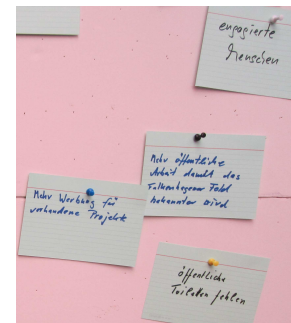 engagierte
Menschen
Mehr öffentliche
Arbeit damit das
Falkenhagener Feld
bekannter wird
Mehr Werbung für
vorhandene Projekte
öffentliche
Toiletten fehlen